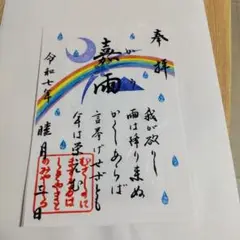 奉拝
嘉雨
かう
我が欲りし
雨は降り来ぬ
かくしあらば
言挙げせずとも
年は栄えむ
令和七年
睦月